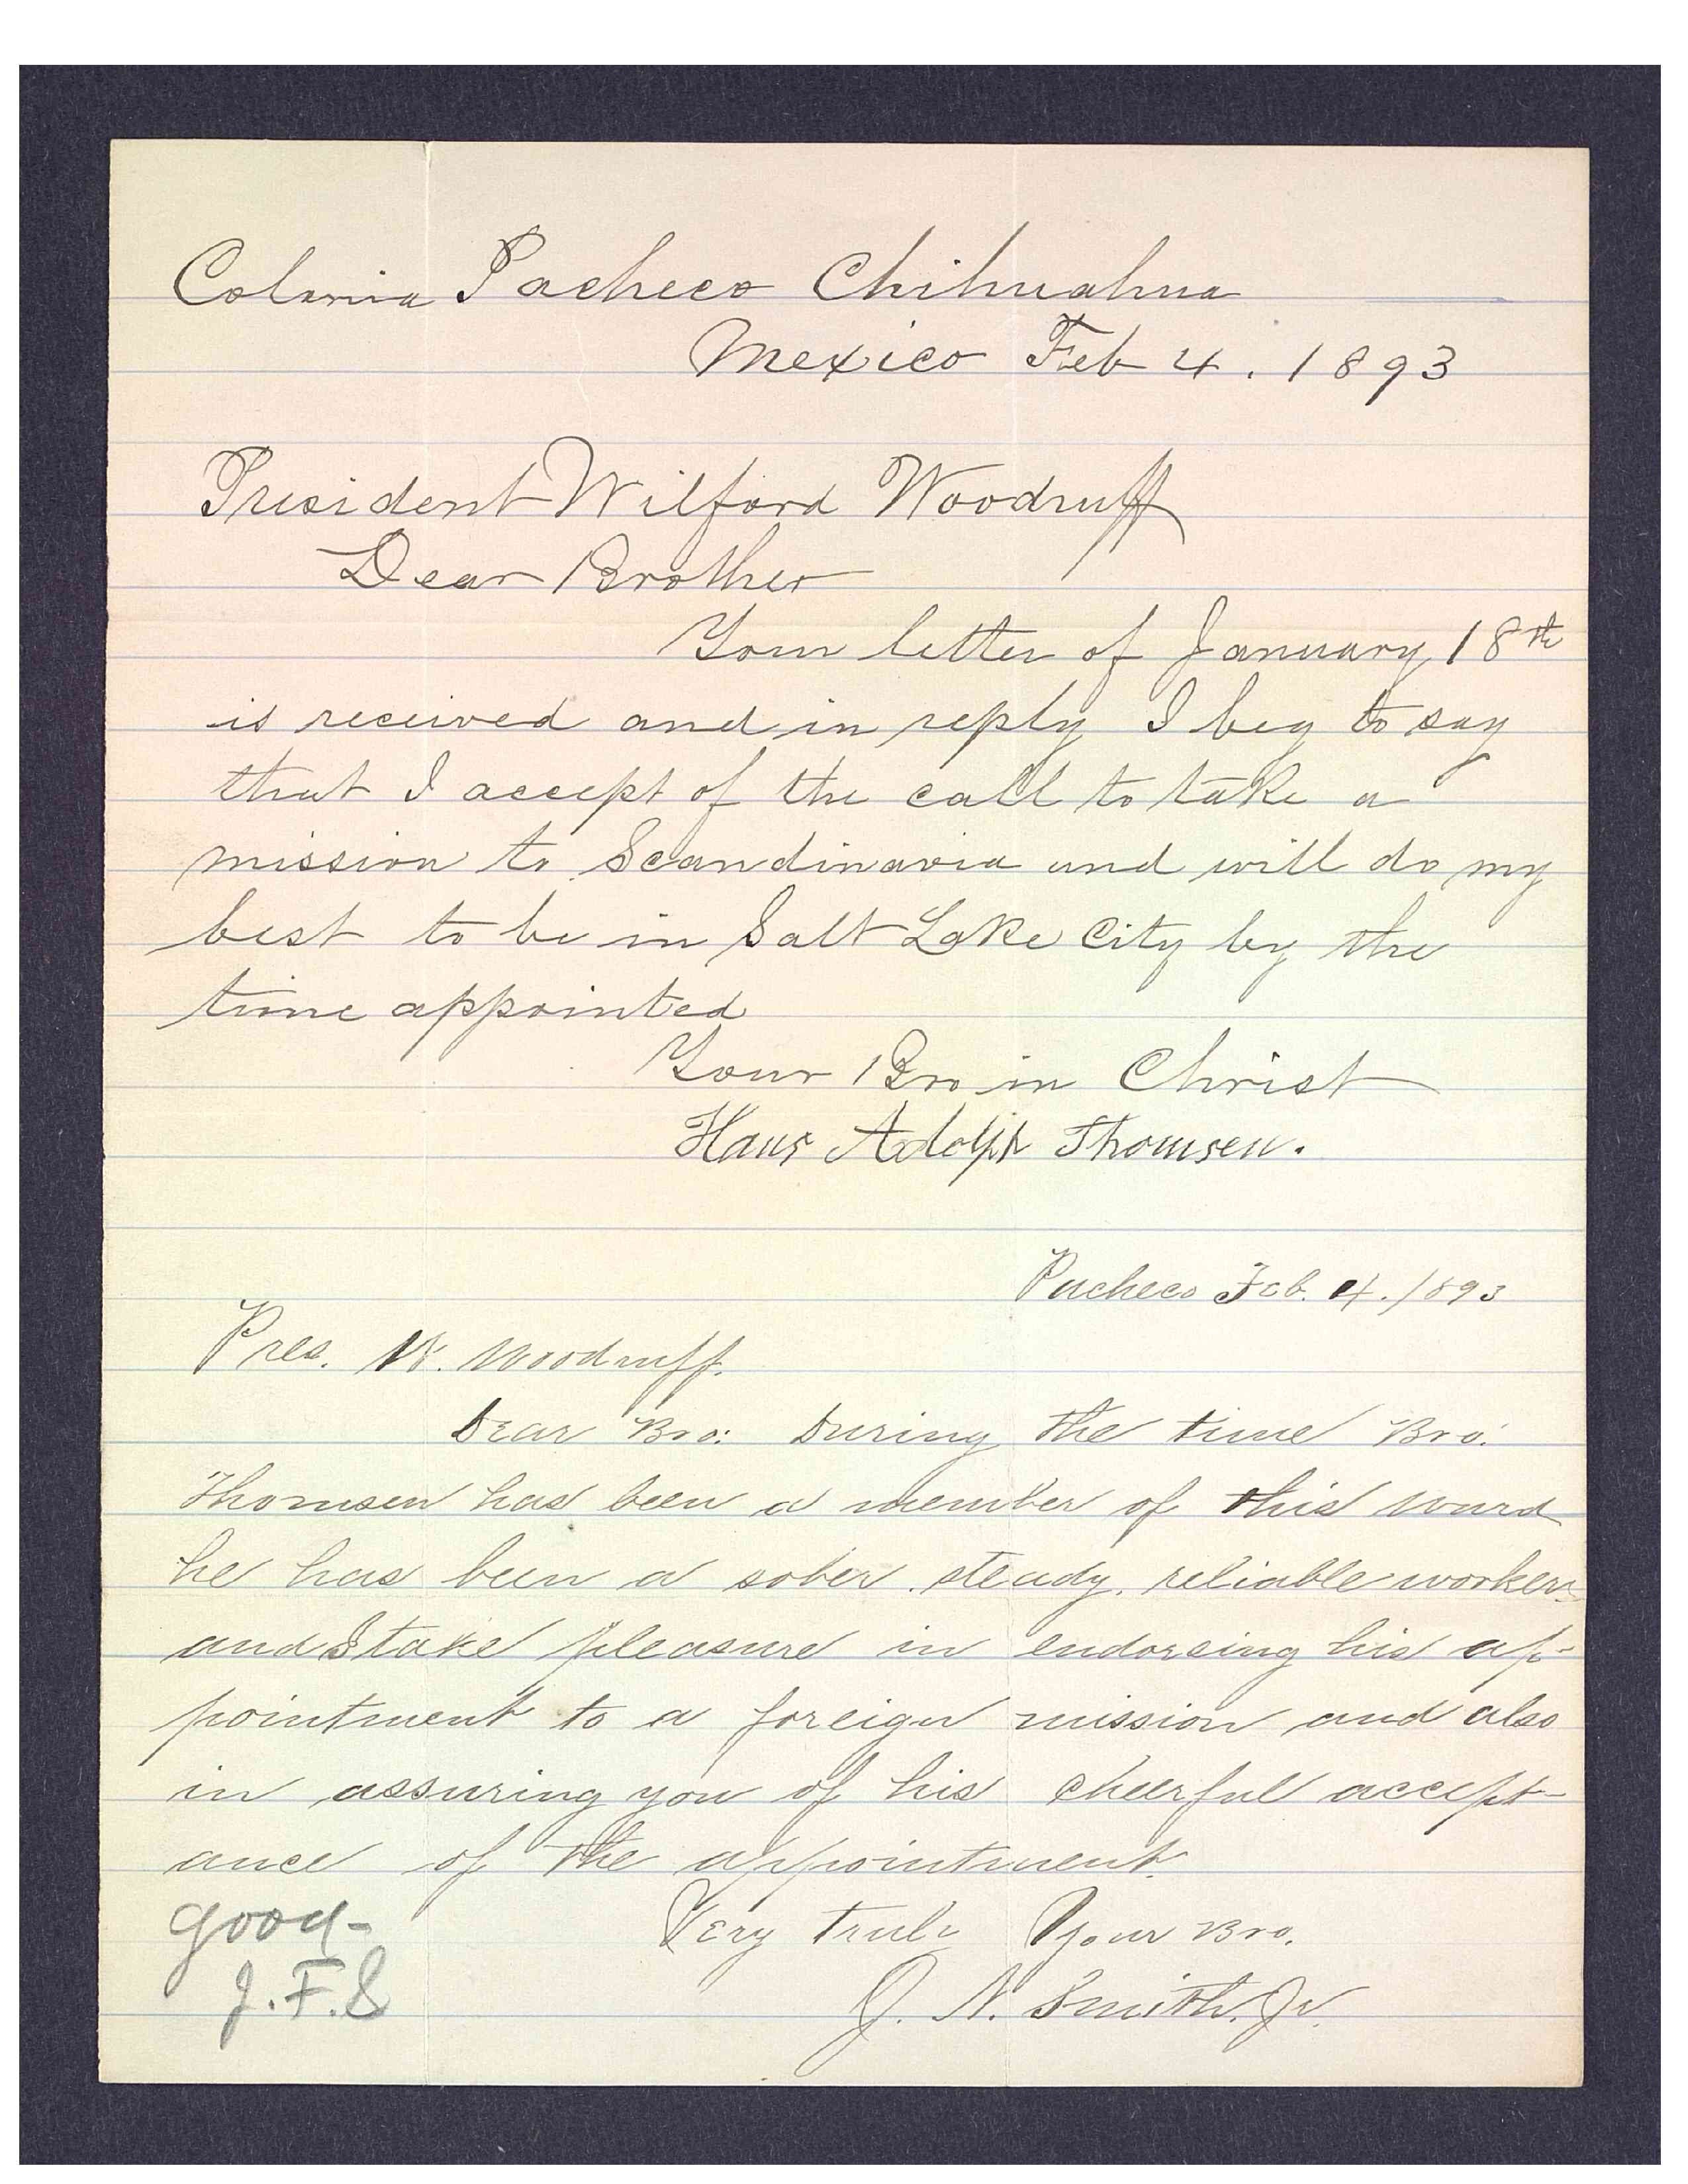 Colonia Pacheco Chihuahua
Mexico Feb 4. 1893
President Wilford Woodruff
Dear Brother
Your letter of January 18th
is received and in reply I beg to say
that I accept of the call to take a
mission to Scandinavia and will do my
best to be in Salt Lake City by the
time appointed
Your Bro in Christ
Hans Adolph Thomsen.
Pacheco Feb. 4. 1893
Pres. W. Woodruff.
Dear Bro: During the time Bro.
Thomsen has been a member of this ward
he has been a sober, steady, reliable worker
and I take pleasure in endorsing his ap-
pointment to a foreign mission and also
in assuring you of his cheerful accept-
ance of the appointment.
Very truly Your Bro.
J. N. Smith. Jr.
good-
J.F.S